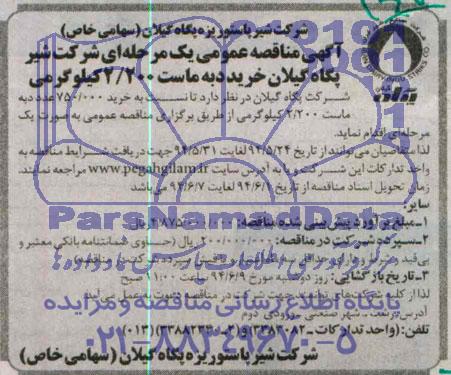 شرکت شیر پاستوریزه پگاه گیلان (سهامی خاص)
آگهی مناقصه عمومی یک مرحله‌ای شرکت شیر
پگاه گیلان خرید دبه ماست ۲/۲۰۰ کیلوگرمی
شرکت پگاه گیلان در نظر دارد تا نسبت به خرید ۷۵۰/۰۰۰ عدد دبه
ماست ۲/۲۰۰ کیلوگرمی از طریق برگزاری مناقصه عمومی به صورت یک
مرحله‌ای اقدام نماید.
لذا متقاضیان می‌توانند از تاریخ ۹۴/۵/۲۴ لغایت ۹۴/۵/۳۱ جهت دریافت شرایط مناقصه به
واحد تدارکات این شرکت و یا به آدرس سایت www.pegahgilan.ir مراجعه نمایند.
زمان تحویل اسناد مناقصه از تاریخ ۹۴/۶/۱ لغایت ۹۴/۶/۷ می‌باشد
سایر
۱-مبلغ برآورد پیش بینی شده مناقصه: ریال
۲-سپرده شرکت در مناقصه: ۲۰۰/۰۰۰/۰۰۰ ریال (حاوی ضمانتنامه بانکی معتبر و
۳-تاریخ بازگشایی: روز دوشنبه مورخ ۹۴/۶/۹ ساعت ۱۱/۰۰ صبح
لذا از کلیه در مناقصه دعوت بعمل می‌آید
آدرس: رشت - شهر صنعتی - ورودی دوم
تلفن: (واحد تدارکات) (۰۱۳)
شرکت شیر پاستوریزه پگاه گیلان (سهامی خاص)
ParsNamadData
پایگاه اطلاع رسانی مناقصه و مزایده
۰۲۱-۸۸۳۴۹۶۷۰-۵